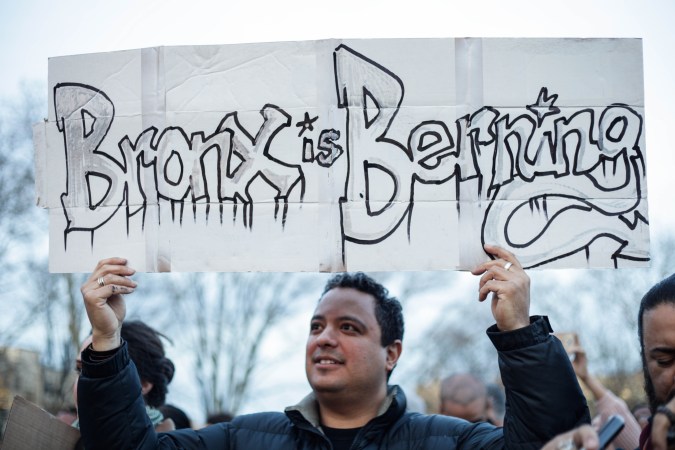 Bronx is Berning